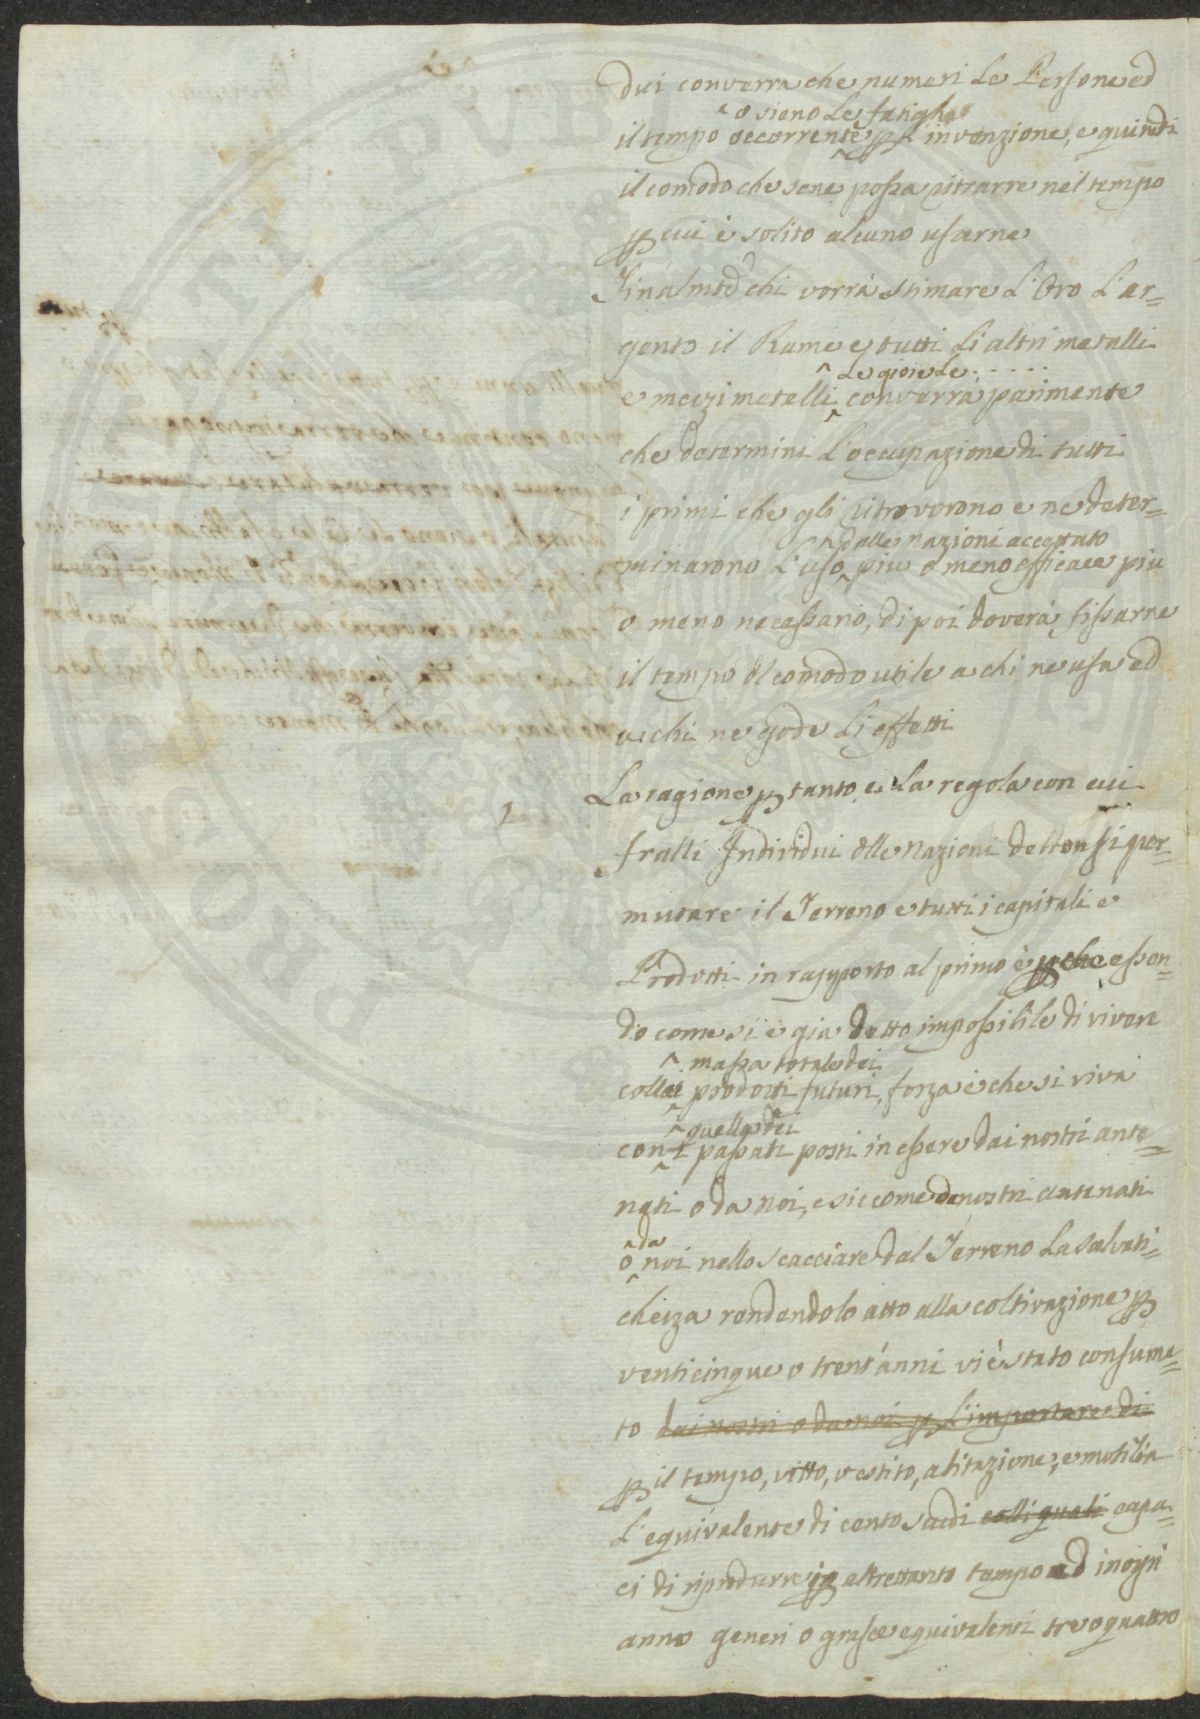 dui converrà che numeri le Persone ed
^ o sieno le fatighe
il tempo occorrente p l'invenzione, e quindi
il comodo che sene possa ritrarre nel tempo
p cui è solito alcuno usarne
Finalmte chi vorrà stimare l'Oro l'ar=
gento il Rame e tutti li altri metalli
^ le gioie le . . . . .
e mezi metalli converrà parimente
che determini l'occupazione di tutti
i primi che gli ritrovorono e ne deter=
^ dalle nazioni accettato
minarono l'uso piu o meno efficace piu
o meno necessario, di poi doverà fissarne
il tempo del comodo utile a chi ne usa ed
a chi ne gode li effetti
La ragione p tanto, e la regola con cui
fralli Individui delle Nazioni debbonsi per=
mutare il Terreno e tutti i capitali e
Prodotti in rapporto al primo è p che essen=
do come si è gia detto impossibile di vivere
^ massa totale dei
colla prodotti futuri, forza è che si viva
^ quella dei
con i passati posti in essere dai nostri ante=
nati o da noi, e siccome da nostri antenati
^ da
o noi nello scacciare dal Terreno la salvati=
chezza rendendolo atto alla coltivazione p
venticinque o trent'anni vi è stato consuma=
to dai nostri o da noi p l'importare di
p il tempo, vitto, vestito, abitazione, e mobilia
l'equivalente di cento scudi colli quali capa=
ci di riprodurre in altrettanto tempo ed in ogni
anno generi o grasce equivalenti tre o quattro